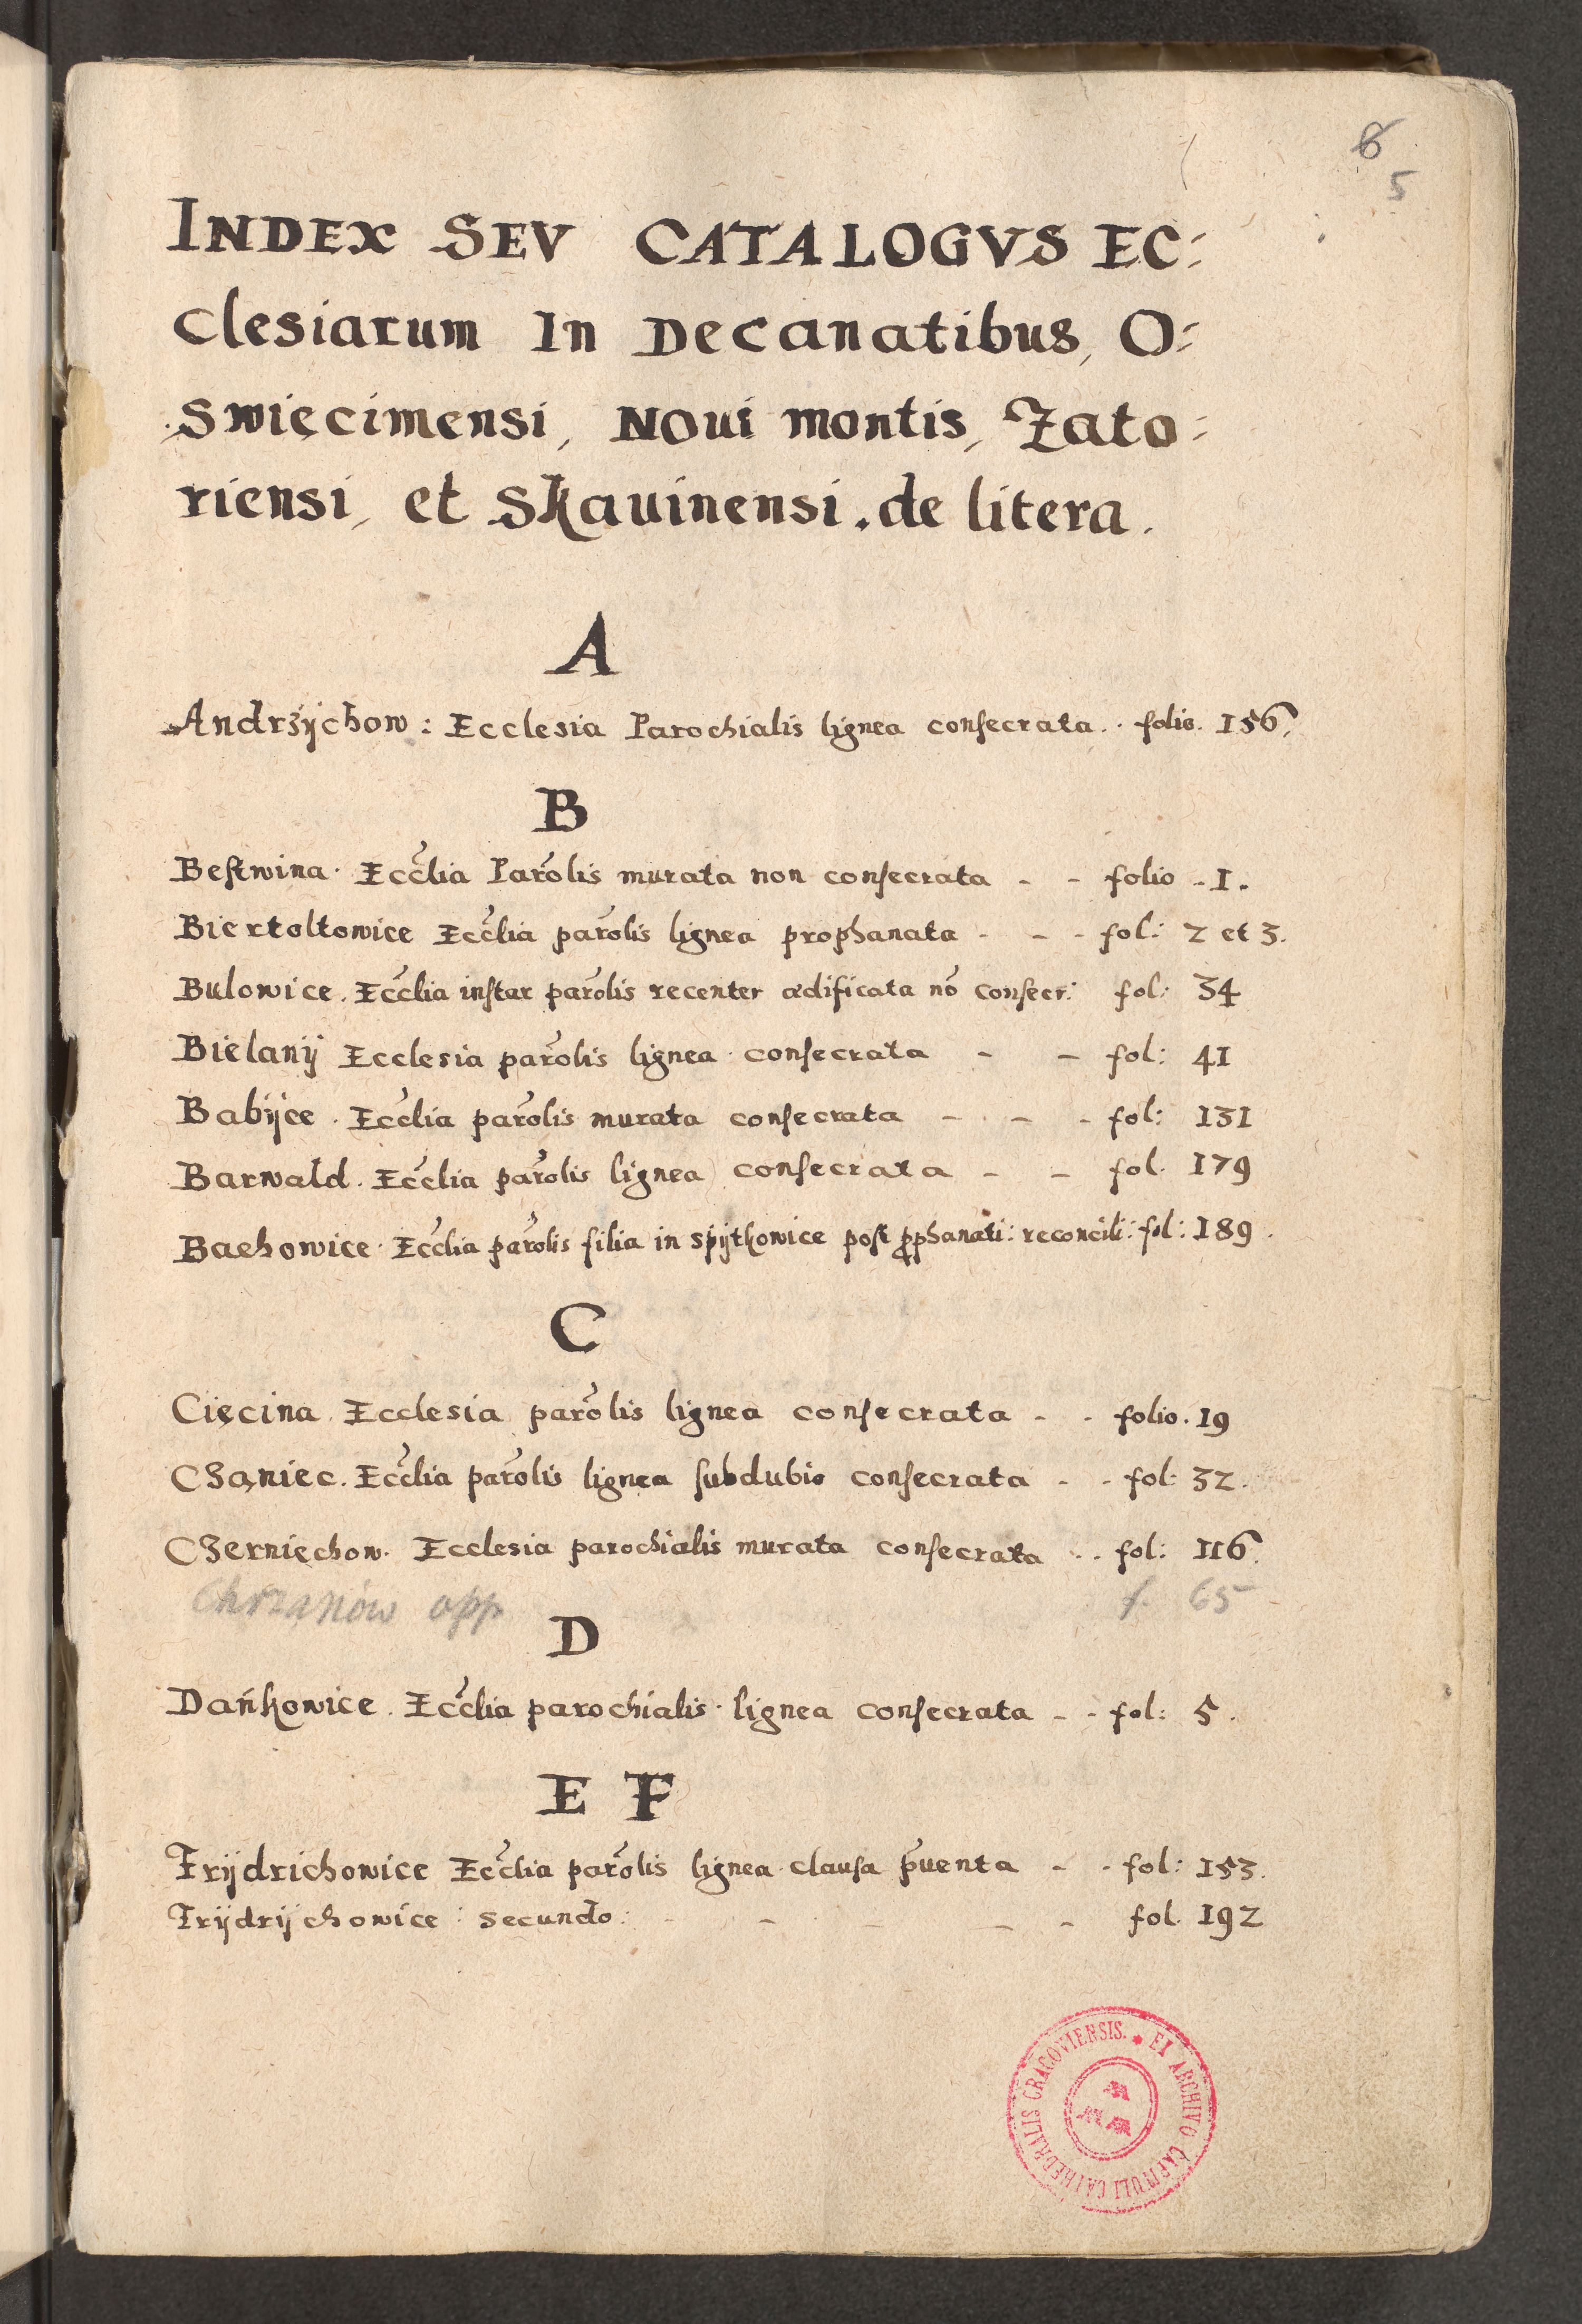 6
5
INDEX SEV CATALOGVS EC:
clesiarum In Decanatibus, O:
Swięcimensi, NOui montis, Zato:
riensi, et Skauinensi. de litera.
A
Andrzÿchow: Ecclesia Parochialis lignea consecrata. . folio. 156.
B
Bestwina. Eccl̃ia Paro̾lis murata non consecrata - - folio . 1.
Biertoltowice Eccl̃ia paro̾lis lignea prophanata - - - fol: 2 et 3.
Bulowice. Eccl̃ia instar paro̾lis recenter ædificata nõ consecr: fol: 34
Bielanÿ Ecclesia paro̾lis lignea consecrata - - fol: 41
Babÿce. Eccl̃ia paro̾lis murata consecrata - - - fol: 131
Barwald. Eccl̃ia paro̾lis lignea consecrata - - fol. 179
Bachowice. Eccl̃ia paro̾lis filia in Spÿtkowice post ꝓphanati: reconcili: fol: 189.
C
Cięcina Ecclesia paro̾lis lignea consecrata - - folio. 19
Czaniec. Eccl̃ia paro̾lis lignea sub dubio consecrata - - fol: 32.
Czernięchow. Ecclesia parochialis murata consecrata - . fol: 116.
Chrzanów opp f. 65
D
Dańkowice. Eccl̃ia parochialis lignea consecrata - - fol: 5.
E F
Frÿdrichowice Eccl̃ia paro̾lis lignea clausa p̃uenta - - fol: 153.
Frÿdrÿchowice: secundo: - - - - - fol. 192
EX ARCHIVO CAPITULI CATHEDRALIS CRACOVIENSIS.